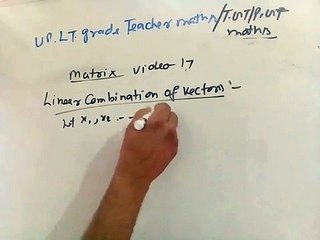 UP.LT.grade Teacher maths/T.GT/P.GT
maths
Matrix Video 17
Linear Combination of Vectors:-
Let x₁, x₂ ---